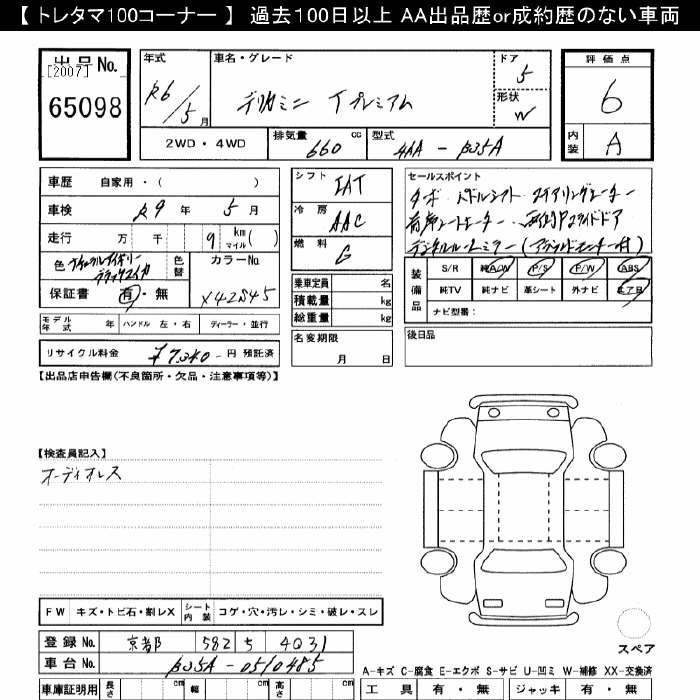 【 トレタマ100コーナー 】 過去100日以上 AA出品歴or成約歴のない車両
出品 No.
[2007]
65098
年式
R6/5月
車名・グレード
デリカミニ Tプレミアム
ドア
5
形状
W
評価点
6
内装
A
2WD・4WD
排気量 660 cc
型式 4AA - B35A
車歴 自家用・( )
車検 R9年 5月
走行 万 千 9 km マイル ( )
色 ナチュラルアイボリー ブラックマイカ
色替
カラーNo. X42S45
保証書 有・無
モデル年式 年 ハンドル 左・右 ディーラー・並行
リサイクル料金 ¥7,340- 円 預託済
シフト IAT
冷房 AAC
燃料 G
乗車定員 名
積載量 kg
総重量 kg
名変期限
月 日
セールスポイント
ターボ パドルシフト ステアリングヒーター
前席シートヒーター 両側Pスライドドア
デジタルルームミラー(アラウンドモニター付)
装備品
S/R 純A/W P/S P/W ABS
純TV 純ナビ 革シート 外ナビ エアB
ナビ型番:
後日品
【出品店申告欄(不良箇所・欠品・注意事項等)】
【検査員記入】
オーディオレス
FW キズ・トビ石・割レX シート内装 コゲ・穴・汚レ・シミ・破レ・スレ
登録 No. 京都 582 ち 4031
車台 No. B35A - 0510485
スペア
A-キズ C-腐食 E-エクボ S-サビ U-凹ミ W-補修 XX-交換済
車庫証明用 長さ cm 幅 cm 高さ cm
工具 有・無 ジャッキ 有・無